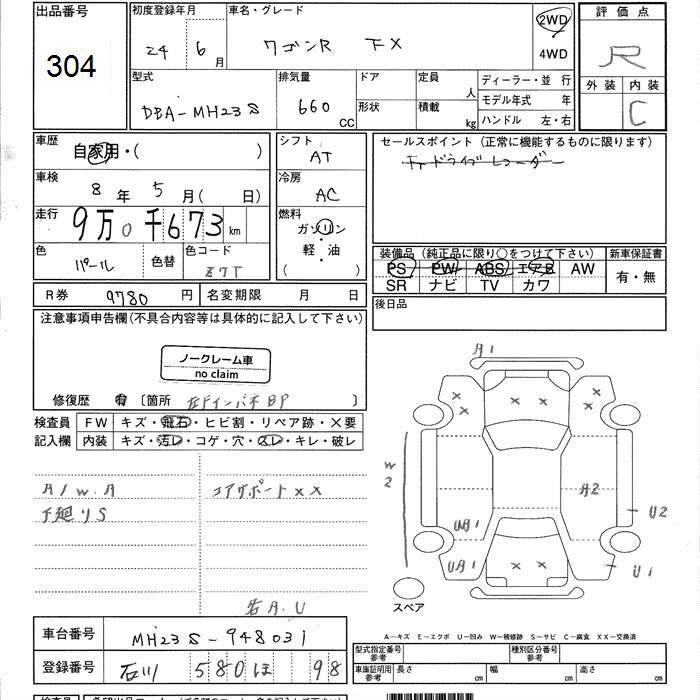 出品番号
304
初度登録年月
24 6月
車名・グレード
ワゴンR FX
2WD
4WD
評価点
R
外装 内装
C
型式
DBA-MH23S
排気量
660 CC
ドア
形状
定員 人
積載 kg
ディーラー・並 行
モデル年式 年
ハンドル 左・右
車歴
自家用・( )
車検
8年 5月( 日)
走行
9万0千673km
色
パール
色替
色コード
Z7T
シフト
AT
冷房
AC
燃料
ガソリン
軽・油
( )
セールスポイント(正常に機能するものに限ります)
ドライブレコーダー
装備品(純正品に限り○をつけて下さい)
新車保証書
PS PW ABS エアB AW
SR ナビ TV カワ
有・無
R券 9780円
名変期限 月 日
後日品
注意事項申告欄(不具合内容等は具体的に記入して下さい)
ノークレーム車
no claim
修復歴 有 [箇所 左Fインパネ部P ]
検査員 FW キズ・飛石・ヒビ割・リペア跡・X要
記入欄 内装 キズ・汚レ・コゲ・穴・スレ・キレ・破レ
A/W.A
下廻りS
コアサポートXX
若A.U
A1
W2
A2
U2
UA1
UA1
U1
スペア
A-キズ E-エクボ U-凹み W-補修跡 S-サビ C-腐食 XX-交換済
車台番号
MH23S-948031
登録番号
石川 580 ほ 98
型式指定番号
参考
種別区分番号
参考
車庫証明用
参考
長さ cm
幅 cm
高さ cm